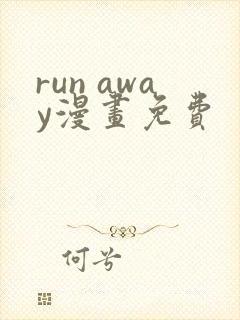 run awa
y漫畫免費
何兮